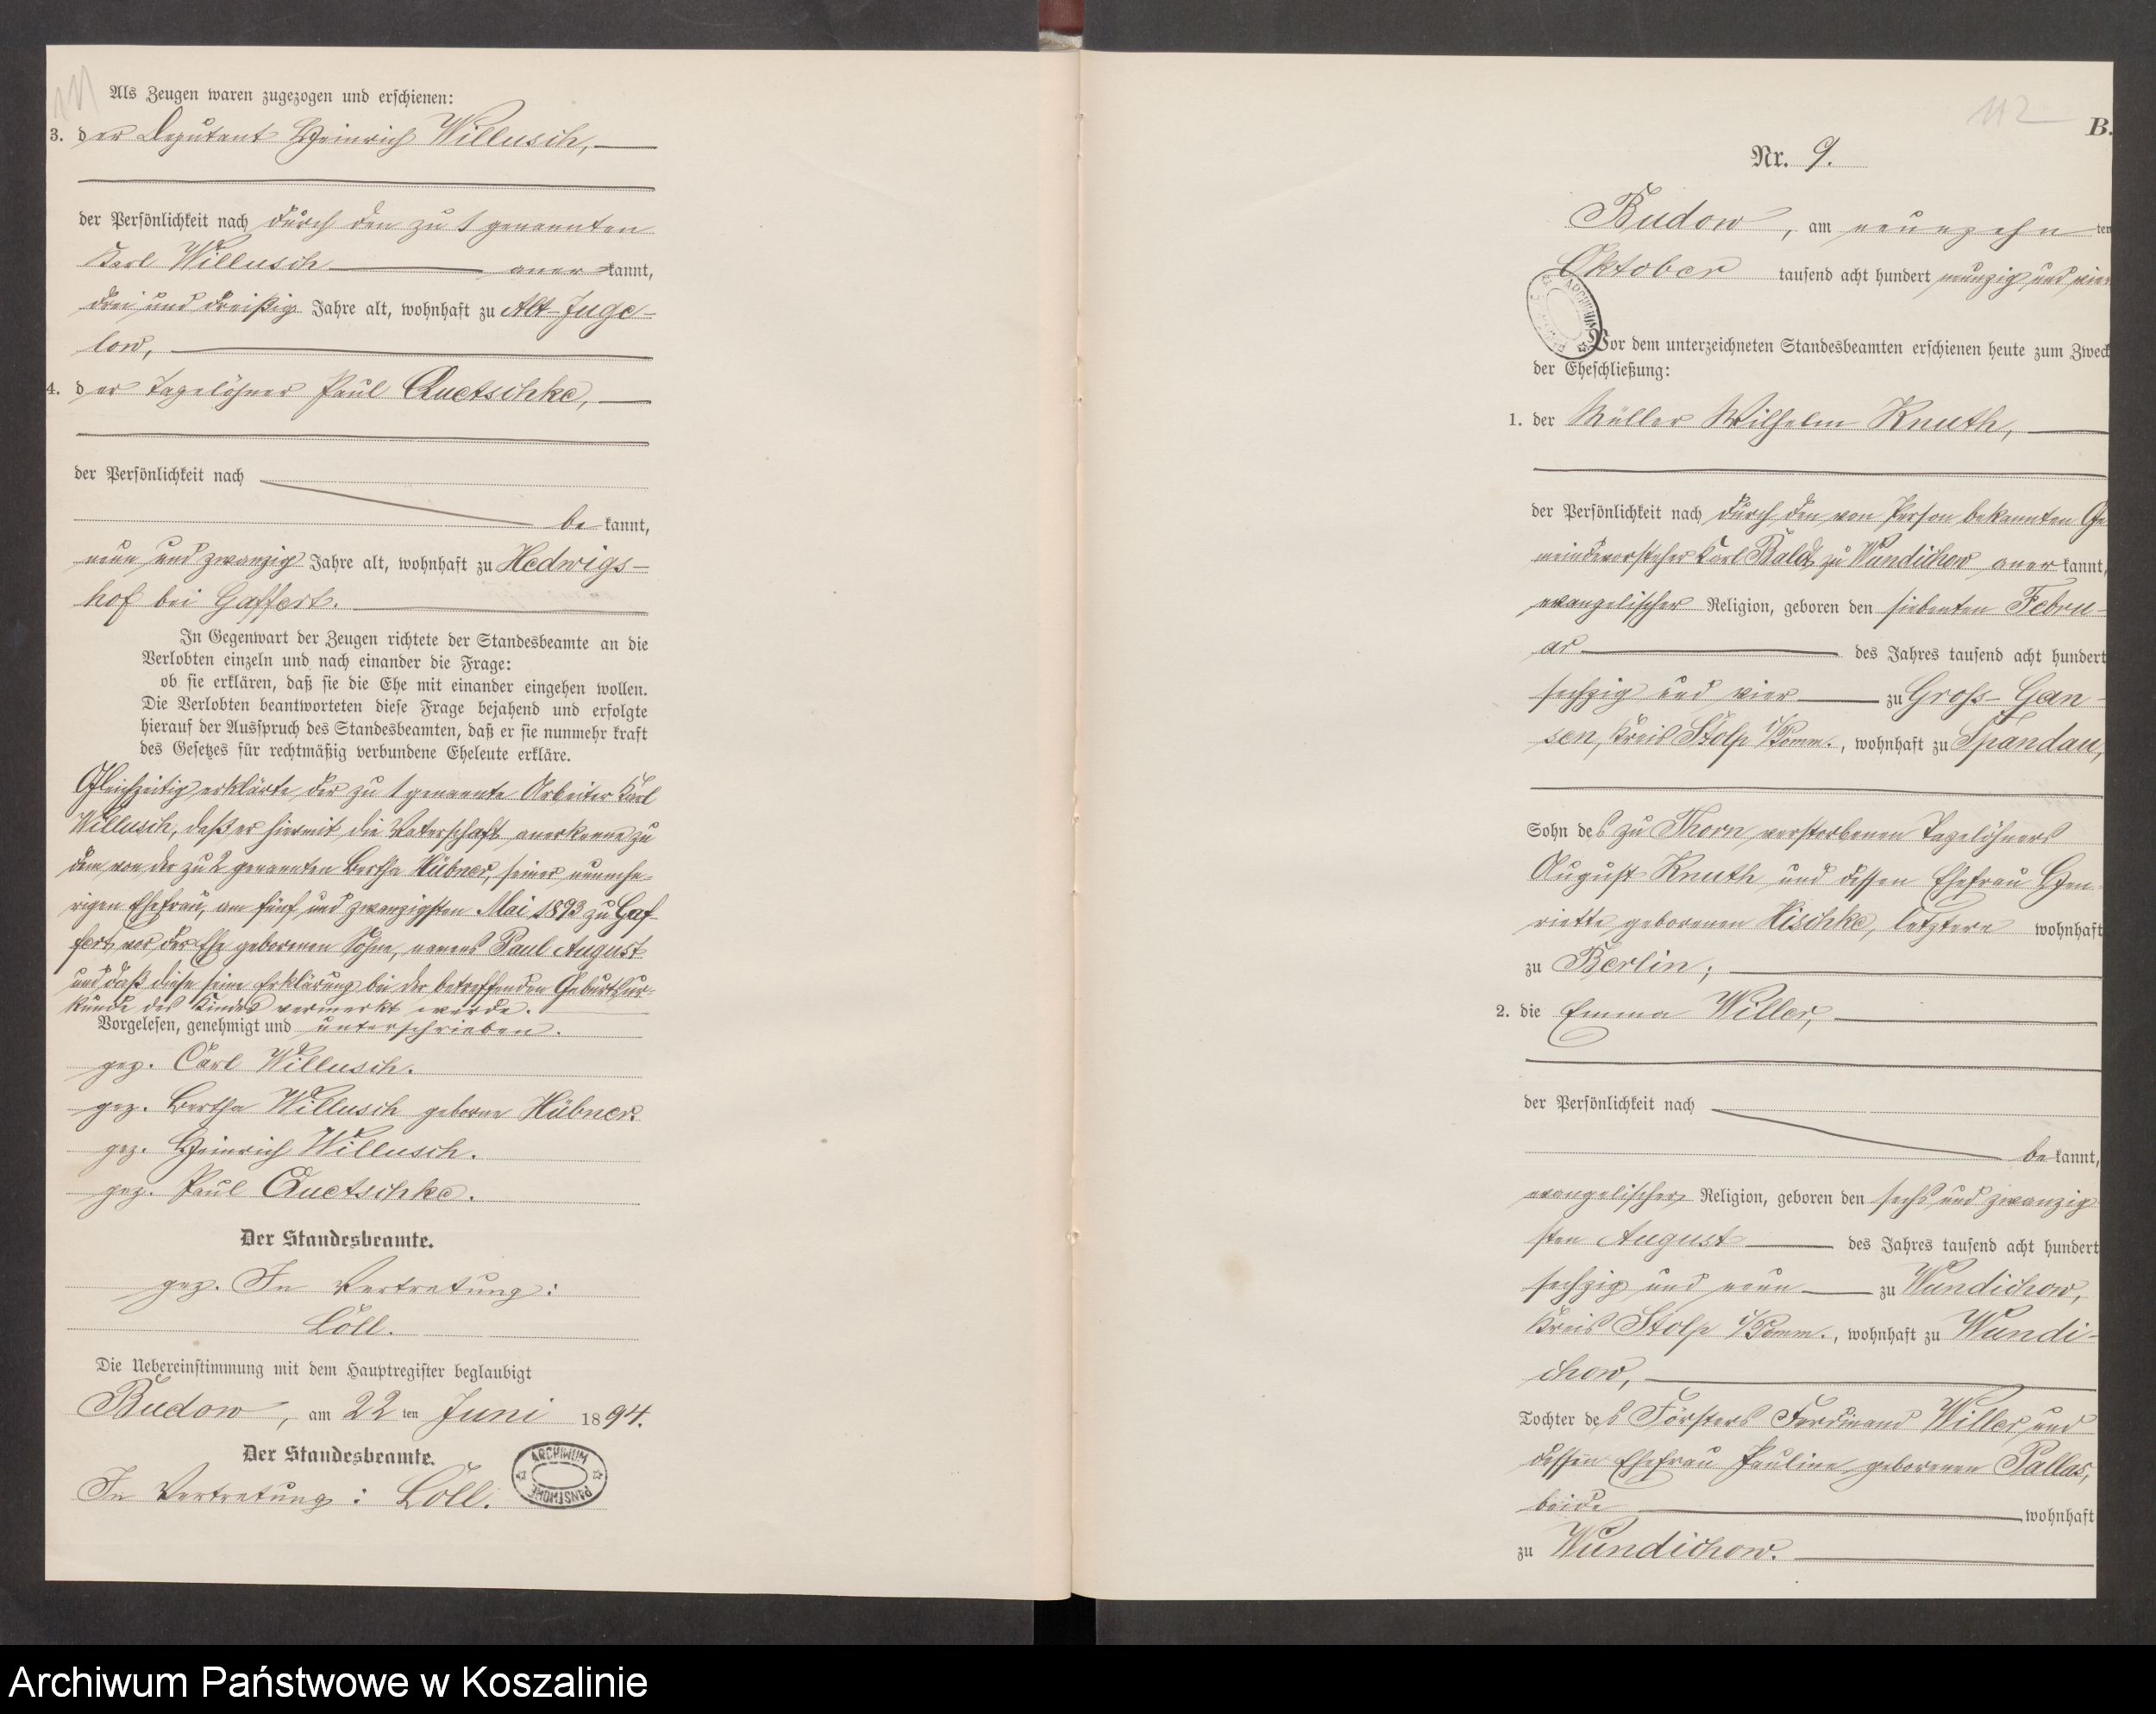 111
Als Zeugen waren zugezogen und erschienen:
3. der Deputant Heinrich Willusch,
der Persönlichkeit nach durch den zu 1 genannten
Karl Willusch anerkannt,
drei und dreißig Jahre alt, wohnhaft zu Alt-Juge-
low,
4. der Tagelöhner Paul Quetschke,
der Persönlichkeit nach
bekannt,
neun und zwanzig Jahre alt, wohnhaft zu Hedwigs-
hof bei Gaffert.
In Gegenwart der Zeugen richtete der Standesbeamte an die
Verlobten einzeln und nach einander die Frage:
ob sie erklären, daß sie die Ehe mit einander eingehen wollen.
Die Verlobten beantworteten diese Frage bejahend und erfolgte
hierauf der Ausspruch des Standesbeamten, daß er sie nunmehr kraft
des Gesetzes für rechtmäßig verbundene Eheleute erkläre.
Gleichzeitig erklärte der zu 1 genannte Arbeiter Karl
Willusch, daß er hiermit die Vaterschaft anerkenne zu
dem von der zu 2 genannten Bertha Hübner, seiner nunmeh-
rigen Ehefrau, am fünf und zwanzigsten Mai 1893 zu Gaf-
fert vor der Ehe geborenen Sohne, namens Paul August
und daß diese seine Erklärung bei der betreffenden Geburtsur-
kunde des Kindes vermerkt werde.
Vorgelesen, genehmigt und unterschrieben.
gez. Carl Willusch.
gez. Bertha Willusch geborne Hübner.
gez. Heinrich Willusch.
gez. Paul Quetschke.
Der Standesbeamte.
gez. In Vertretung:
Löll.
Die Uebereinstimmung mit dem Hauptregister beglaubigt
Budow, am 22 ten Juni 1894.
Der Standesbeamte.
In Vertretung: Löll.
ARCHIWUM
112
B.
Nr. 9.
Budow, am neunzehn ten
Oktober tausend acht hundert neunzig und vier
ARCHIWUM
Vor dem unterzeichneten Standesbeamten erschienen heute zum Zweck
der Eheschließung:
1. der Müller Wilhelm Knuth,
der Persönlichkeit nach durch den von Person bekannten Ge
meindevorsteher Karl Baldt zu Wundichow anerkannt,
evangelischer Religion, geboren den siebenten Febru-
ar des Jahres tausend acht hundert
sechzig und vier zu Groß-Gan-
sen, Kreis Stolp i/Pomm., wohnhaft zu Spandau,
Sohn des zu Thorn verstorbenen Tagelöhners
August Knuth und dessen Ehefrau Hen
riette geborenen Kischke, letztere wohnhaft
zu Berlin;
2. die Emma Willer,
der Persönlichkeit nach
bekannt,
evangelischer Religion, geboren den sechs und zwanzig
sten August des Jahres tausend acht hundert
sechzig und neun zu Wundichow,
Kreis Stolp i/Pomm., wohnhaft zu Wundi-
chow,
Tochter des Försters Ferdinand Willer und
dessen Ehefrau Pauline geborenen Pallas,
beide wohnhaft
zu Wundichow.
Archiwum Państwowe w Koszalinie